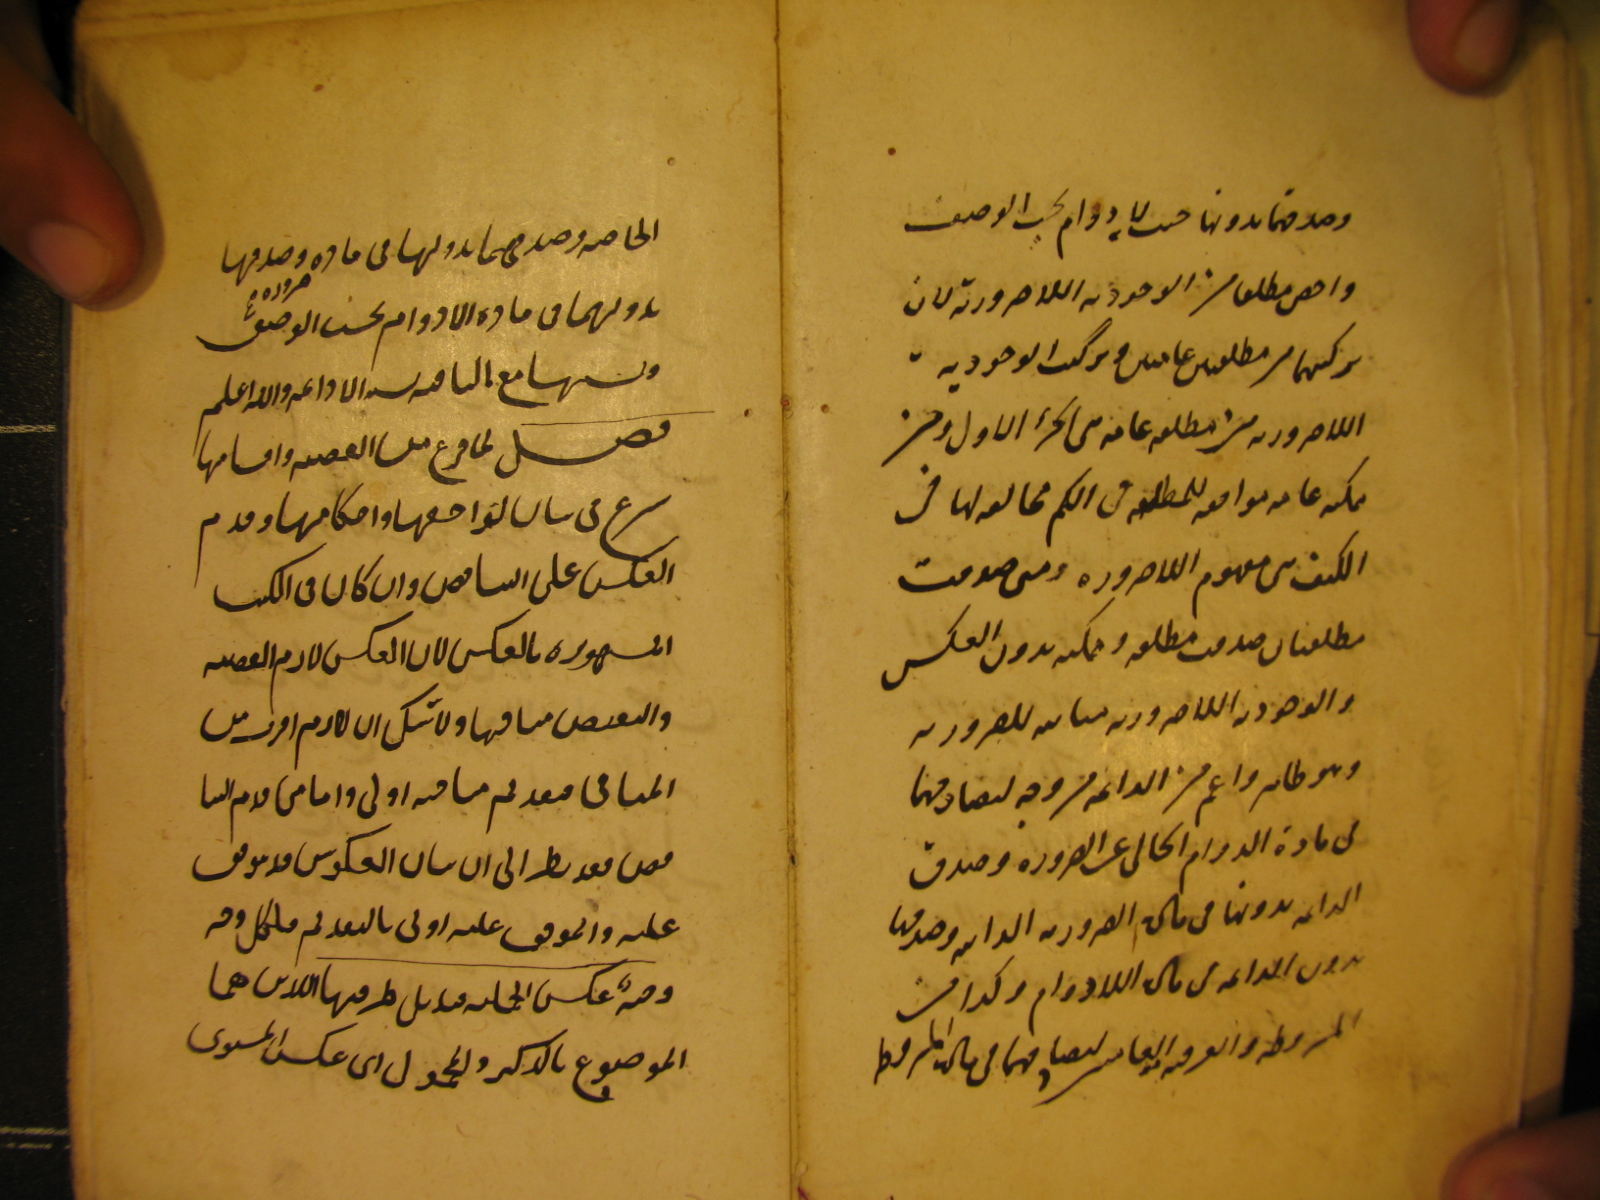 وصدقهما بدونها حيث لا دوام بحسب الوصف
واخص مطلقا من الوجودية اللاضرورية لان
تركيبها من مطلقتين عامتين وتركيب الوجودية
اللاضرورية من مطلقة عامة هى الجزء الاول ومن
ممكنة عامة موافقة للمطلقة فى الكم مخالفة لها فى
الكيف هى مفهوم اللاضرورة ومتى صدقت
مطلقتان صدقت مطلقة وممكنة بدون العكس
والوجودية اللاضرورية مباينة للضرورية
وهو ظاهر واعم من الدائمة من وجه لتصادقهما
فى مادة الدوام الخالى عن الضرورة وصدق
الدائمة بدونها فى مادة الضرورية الذاتية وصدقها
بدون الدائمة فى مادة اللادوام وكذا من
المشروطة والعرفية العامتين لتصادقهما فى مادة المشروطة
الخاصة وصدقهما بدونها فى مادة ضرورة وصدقها
بدونهما فى مادة اللادوام بحسب الوصف
ونسبتها مع الباقية نسبة اللادائمة والله اعلم
فصل لما فرغ من القضية واقسامها
شرع فى بيان لواحقها واحكامها وقدم
العكس على التناقض وان كان فى الكتب
المشهورة بالعكس لان العكس لازم القضية
والنقيض منافيها ولا شك ان اللازم اقرب من
المنافى فتقديمه اولى واما من قدم التنا
قض فقد نظر الى ان بيان العكوس قد يتوقف
عليه والموقوف عليه اولى بالتقديم فلكل وجهة
وجهة عكس الحملية تبديل طرفيها اللذين هما
الموضوع بالذكر والمحمول اى عكس المستوى